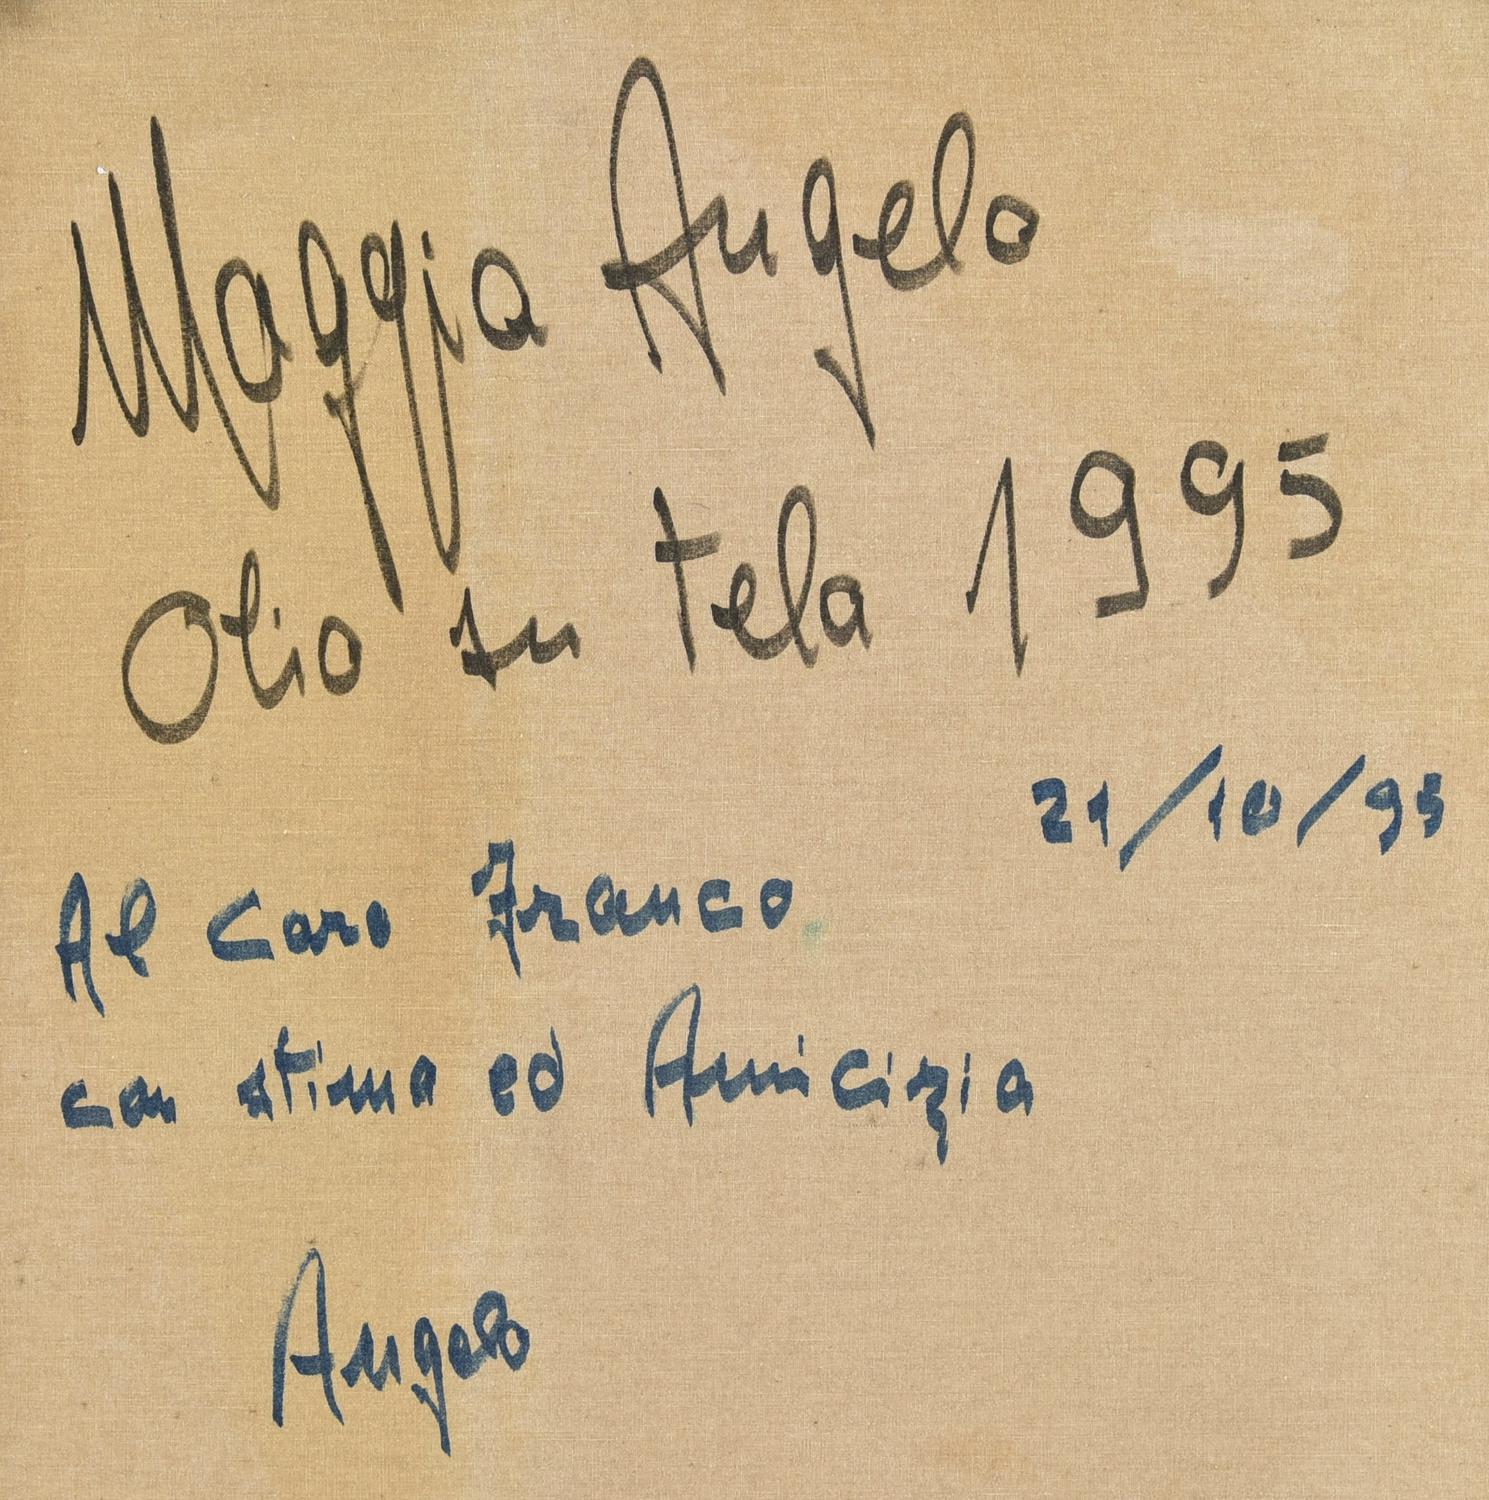 Maggia Angelo
Olio su tela 1995
21/10/95
Al caro Franco
con stima ed Amicizia
Angelo